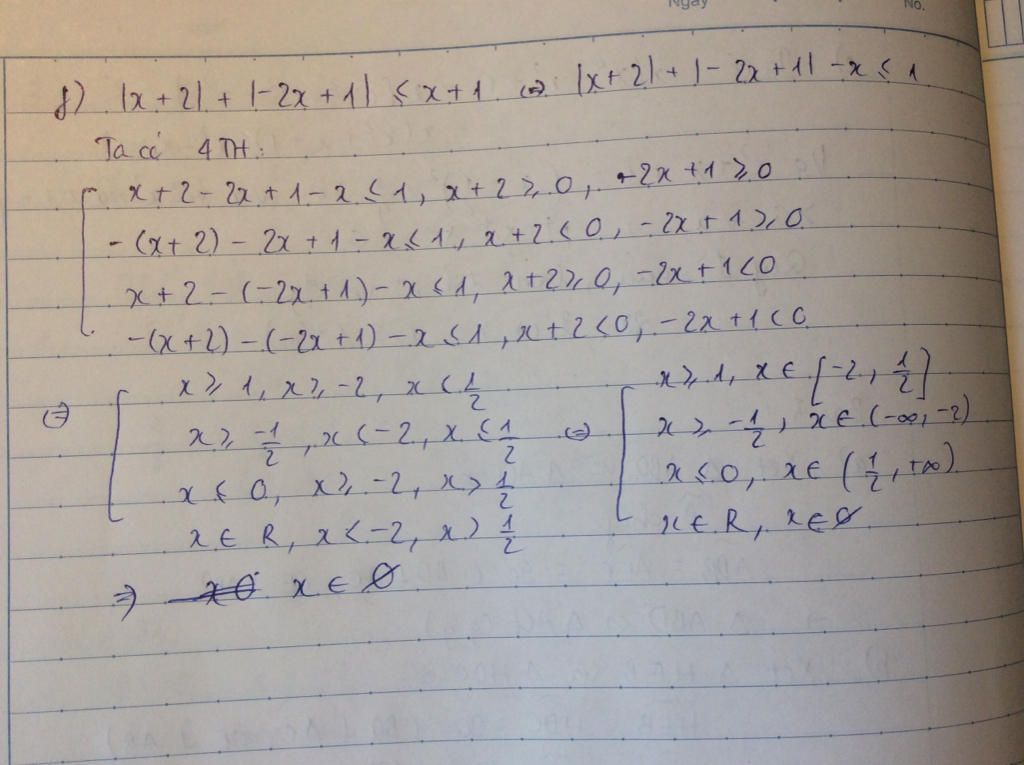 Ngày
No.
f) |x+2| + |-2x+1| ≤ x+1 ⇔ |x+2| + |-2x+1| -x ≤ 1
Ta có 4 TH:
x+2-2x+1-x ≤ 1, x+2 ≥ 0, -2x+1 ≥ 0
-(x+2)-2x+1-x ≤ 1, x+2 < 0, -2x+1 ≥ 0
x+2-(-2x+1)-x ≤ 1, x+2 ≥ 0, -2x+1 < 0
-(x+2)-(-2x+1)-x ≤ 1, x+2 < 0, -2x+1 < 0
⇔ [ x ≥ 1, x ≥ -2, x < 1/2
x ≥ -1/2, x < -2, x ≤ 1/2
x ≤ 0, x ≥ -2, x > 1/2
x ∈ R, x < -2, x > 1/2
⇔ [ x ≥ 1, x ∈ [-2, 1/2]
x ≥ -1/2, x ∈ (-∞, -2)
x ≤ 0, x ∈ (1/2, +∞)
x ∈ R, x ∈ ∅
⇒ x ∈ ∅